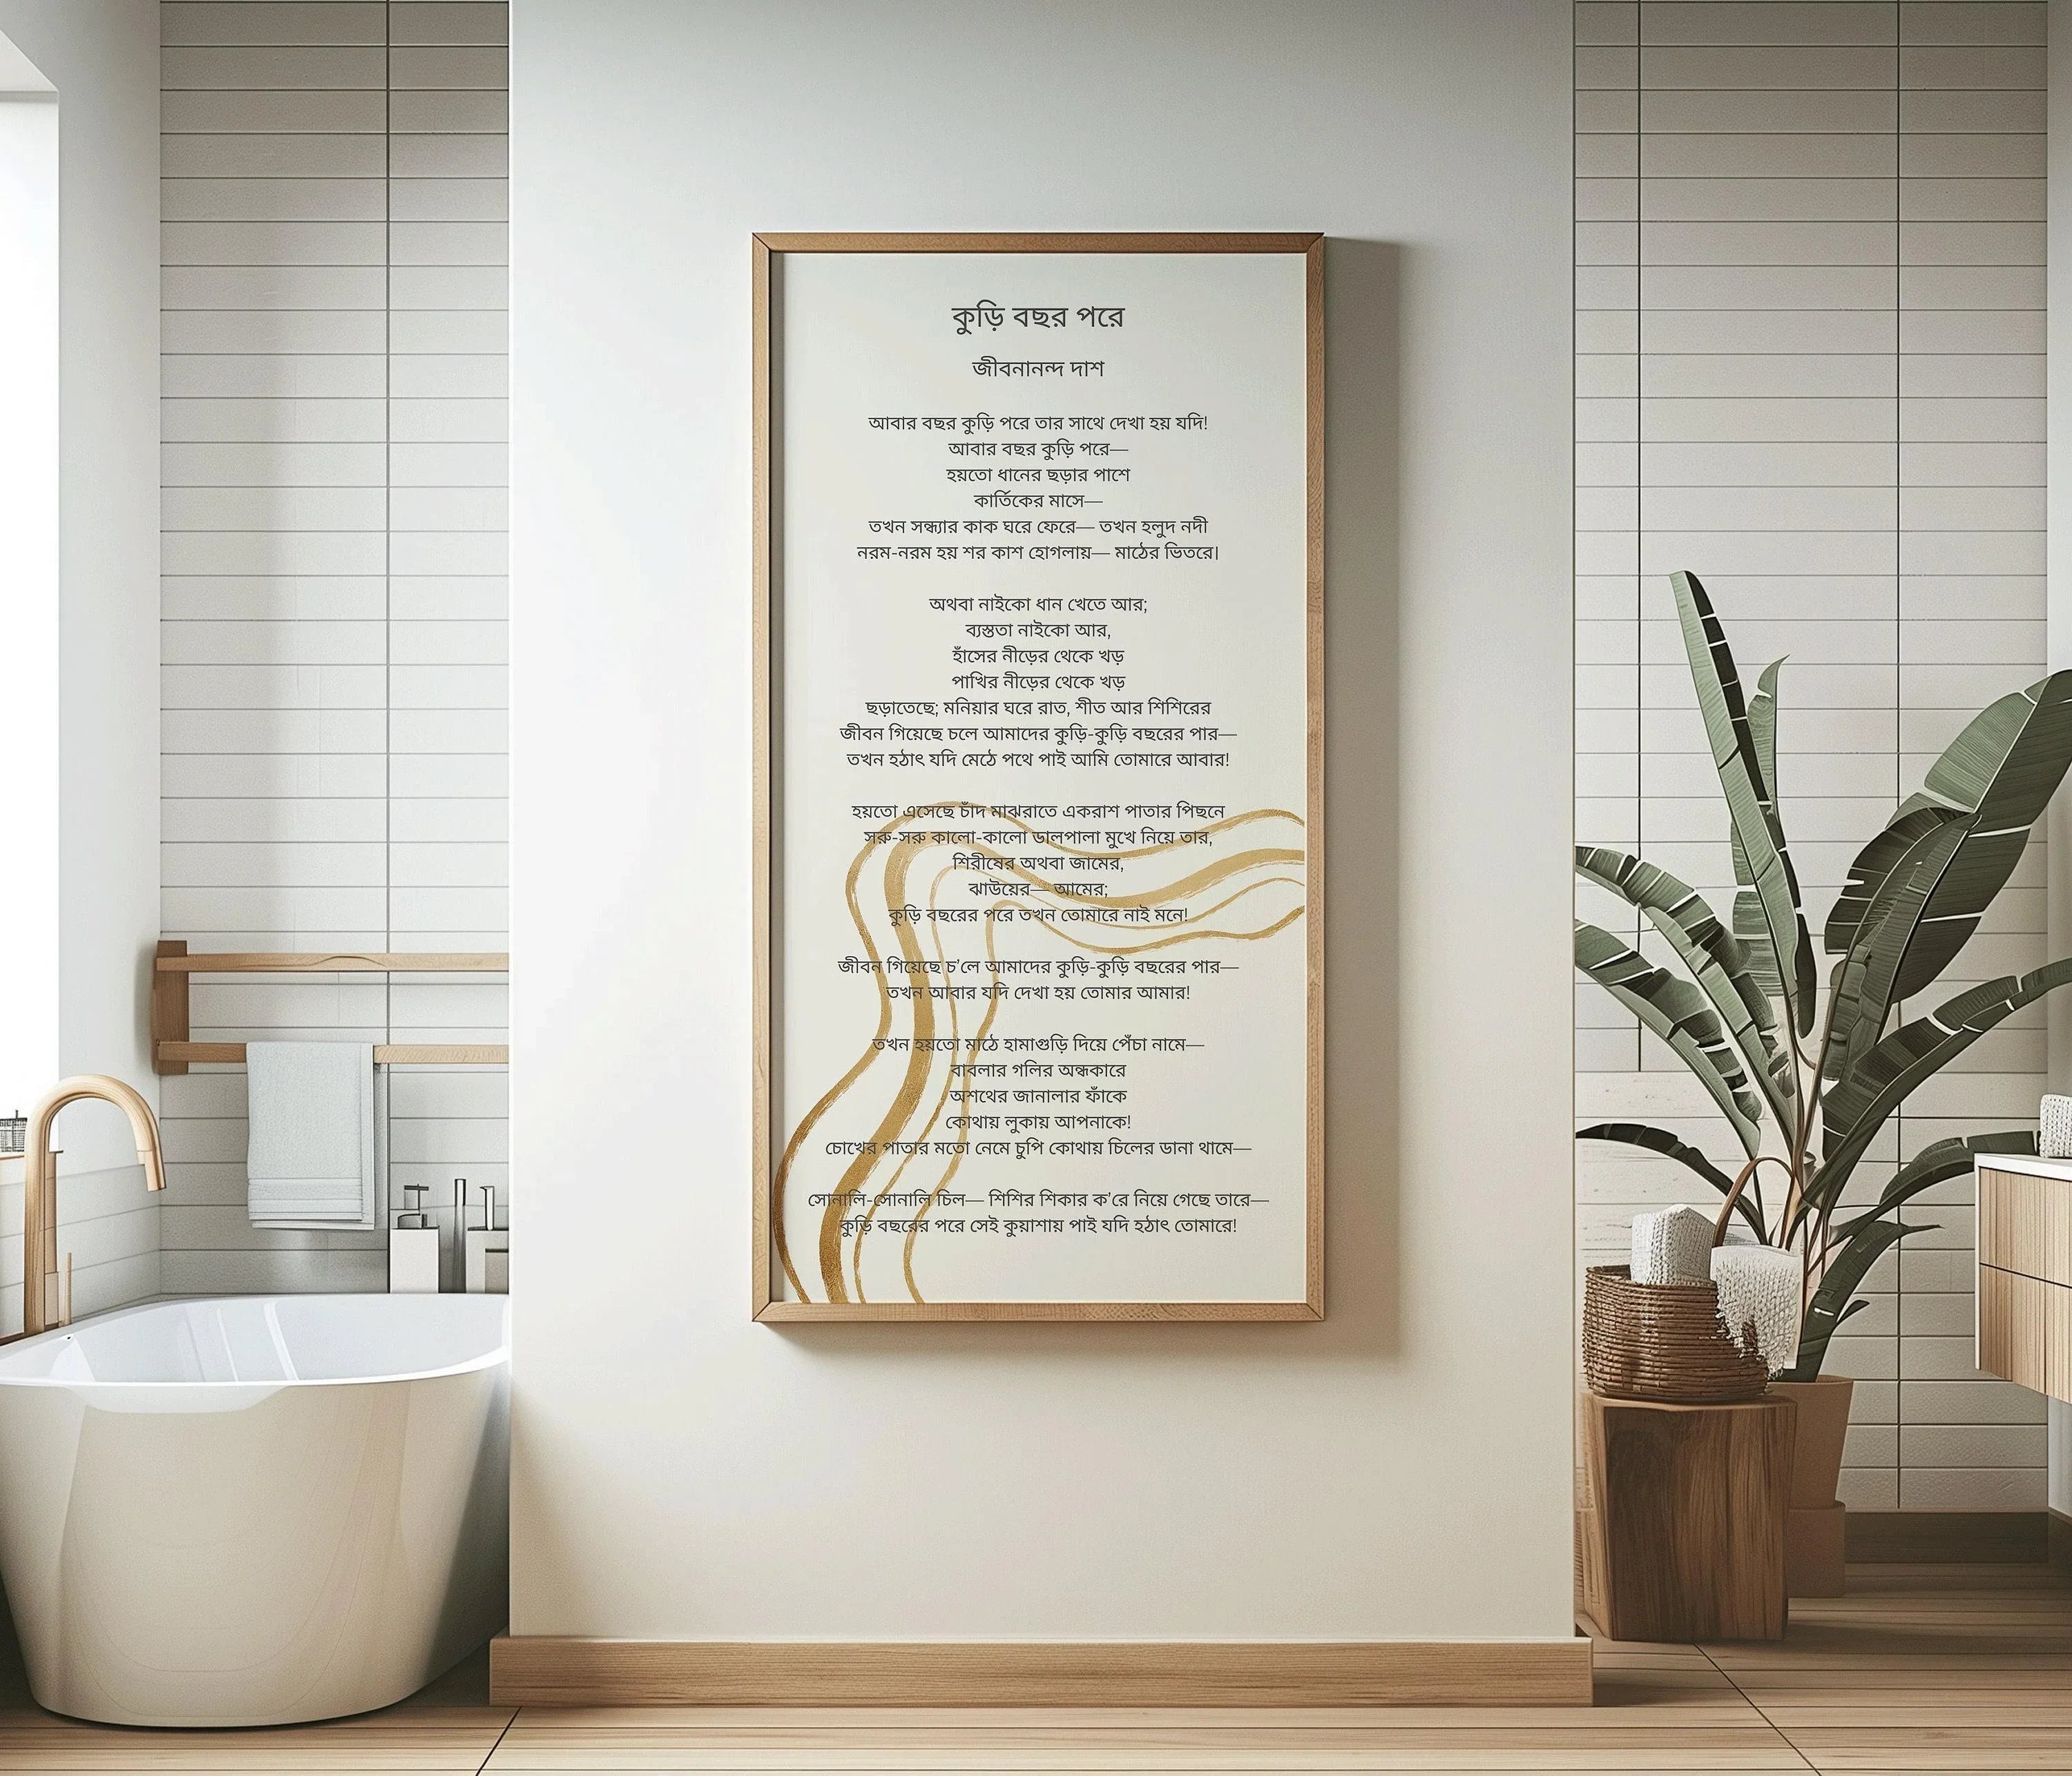 কুড়ি বছর পরে
জীবনানন্দ দাশ
আবার বছর কুড়ি পরে তার সাথে দেখা হয় যদি!
আবার বছর কুড়ি পরে—
হয়তো ধানের ছড়ার পাশে
কার্তিকের মাসে—
তখন সন্ধ্যার কাক ঘরে ফেরে— তখন হলুদ নদী
নরম-নরম হয় শর কাশ হোগলায়— মাঠের ভিতরে।
অথবা নাইকো ধান খেতে আর;
ব্যস্ততা নাইকো আর,
হাঁসের নীড়ের থেকে খড়
পাখির নীড়ের থেকে খড়
ছড়াতেছে; মনিয়ার ঘরে রাত, শীত আর শিশিরের
জীবন গিয়েছে চলে আমাদের কুড়ি-কুড়ি বছরের পার—
তখন হঠাৎ যদি মেঠে পথে পাই আমি তোমারে আবার!
হয়তো এসেছে চাঁদ মাঝরাতে একরাশ পাতার পিছনে
সরু-সরু কালো-কালো ডালপালা মুখে নিয়ে তার,
শিরীষের অথবা জামের,
ঝাউয়ের— আমের;
কুড়ি বছরের পরে তখন তোমারে নাই মনে!
জীবন গিয়েছে চ’লে আমাদের কুড়ি-কুড়ি বছরের পার—
তখন আবার যদি দেখা হয় তোমার আমার!
তখন হয়তো মাঠে হামাগুড়ি দিয়ে পেঁচা নামে—
বাবলার গলির অন্ধকারে
অশথের জানালার ফাঁকে
কোথায় লুকায় আপনাকে!
চোখের পাতার মতো নেমে চুপি কোথায় চিলের ডানা থামে—
সোনালি-সোনালি চিল— শিশির শিকার ক’রে নিয়ে গেছে তারে—
কুড়ি বছরের পরে সেই কুয়াশায় পাই যদি হঠাৎ তোমারে!